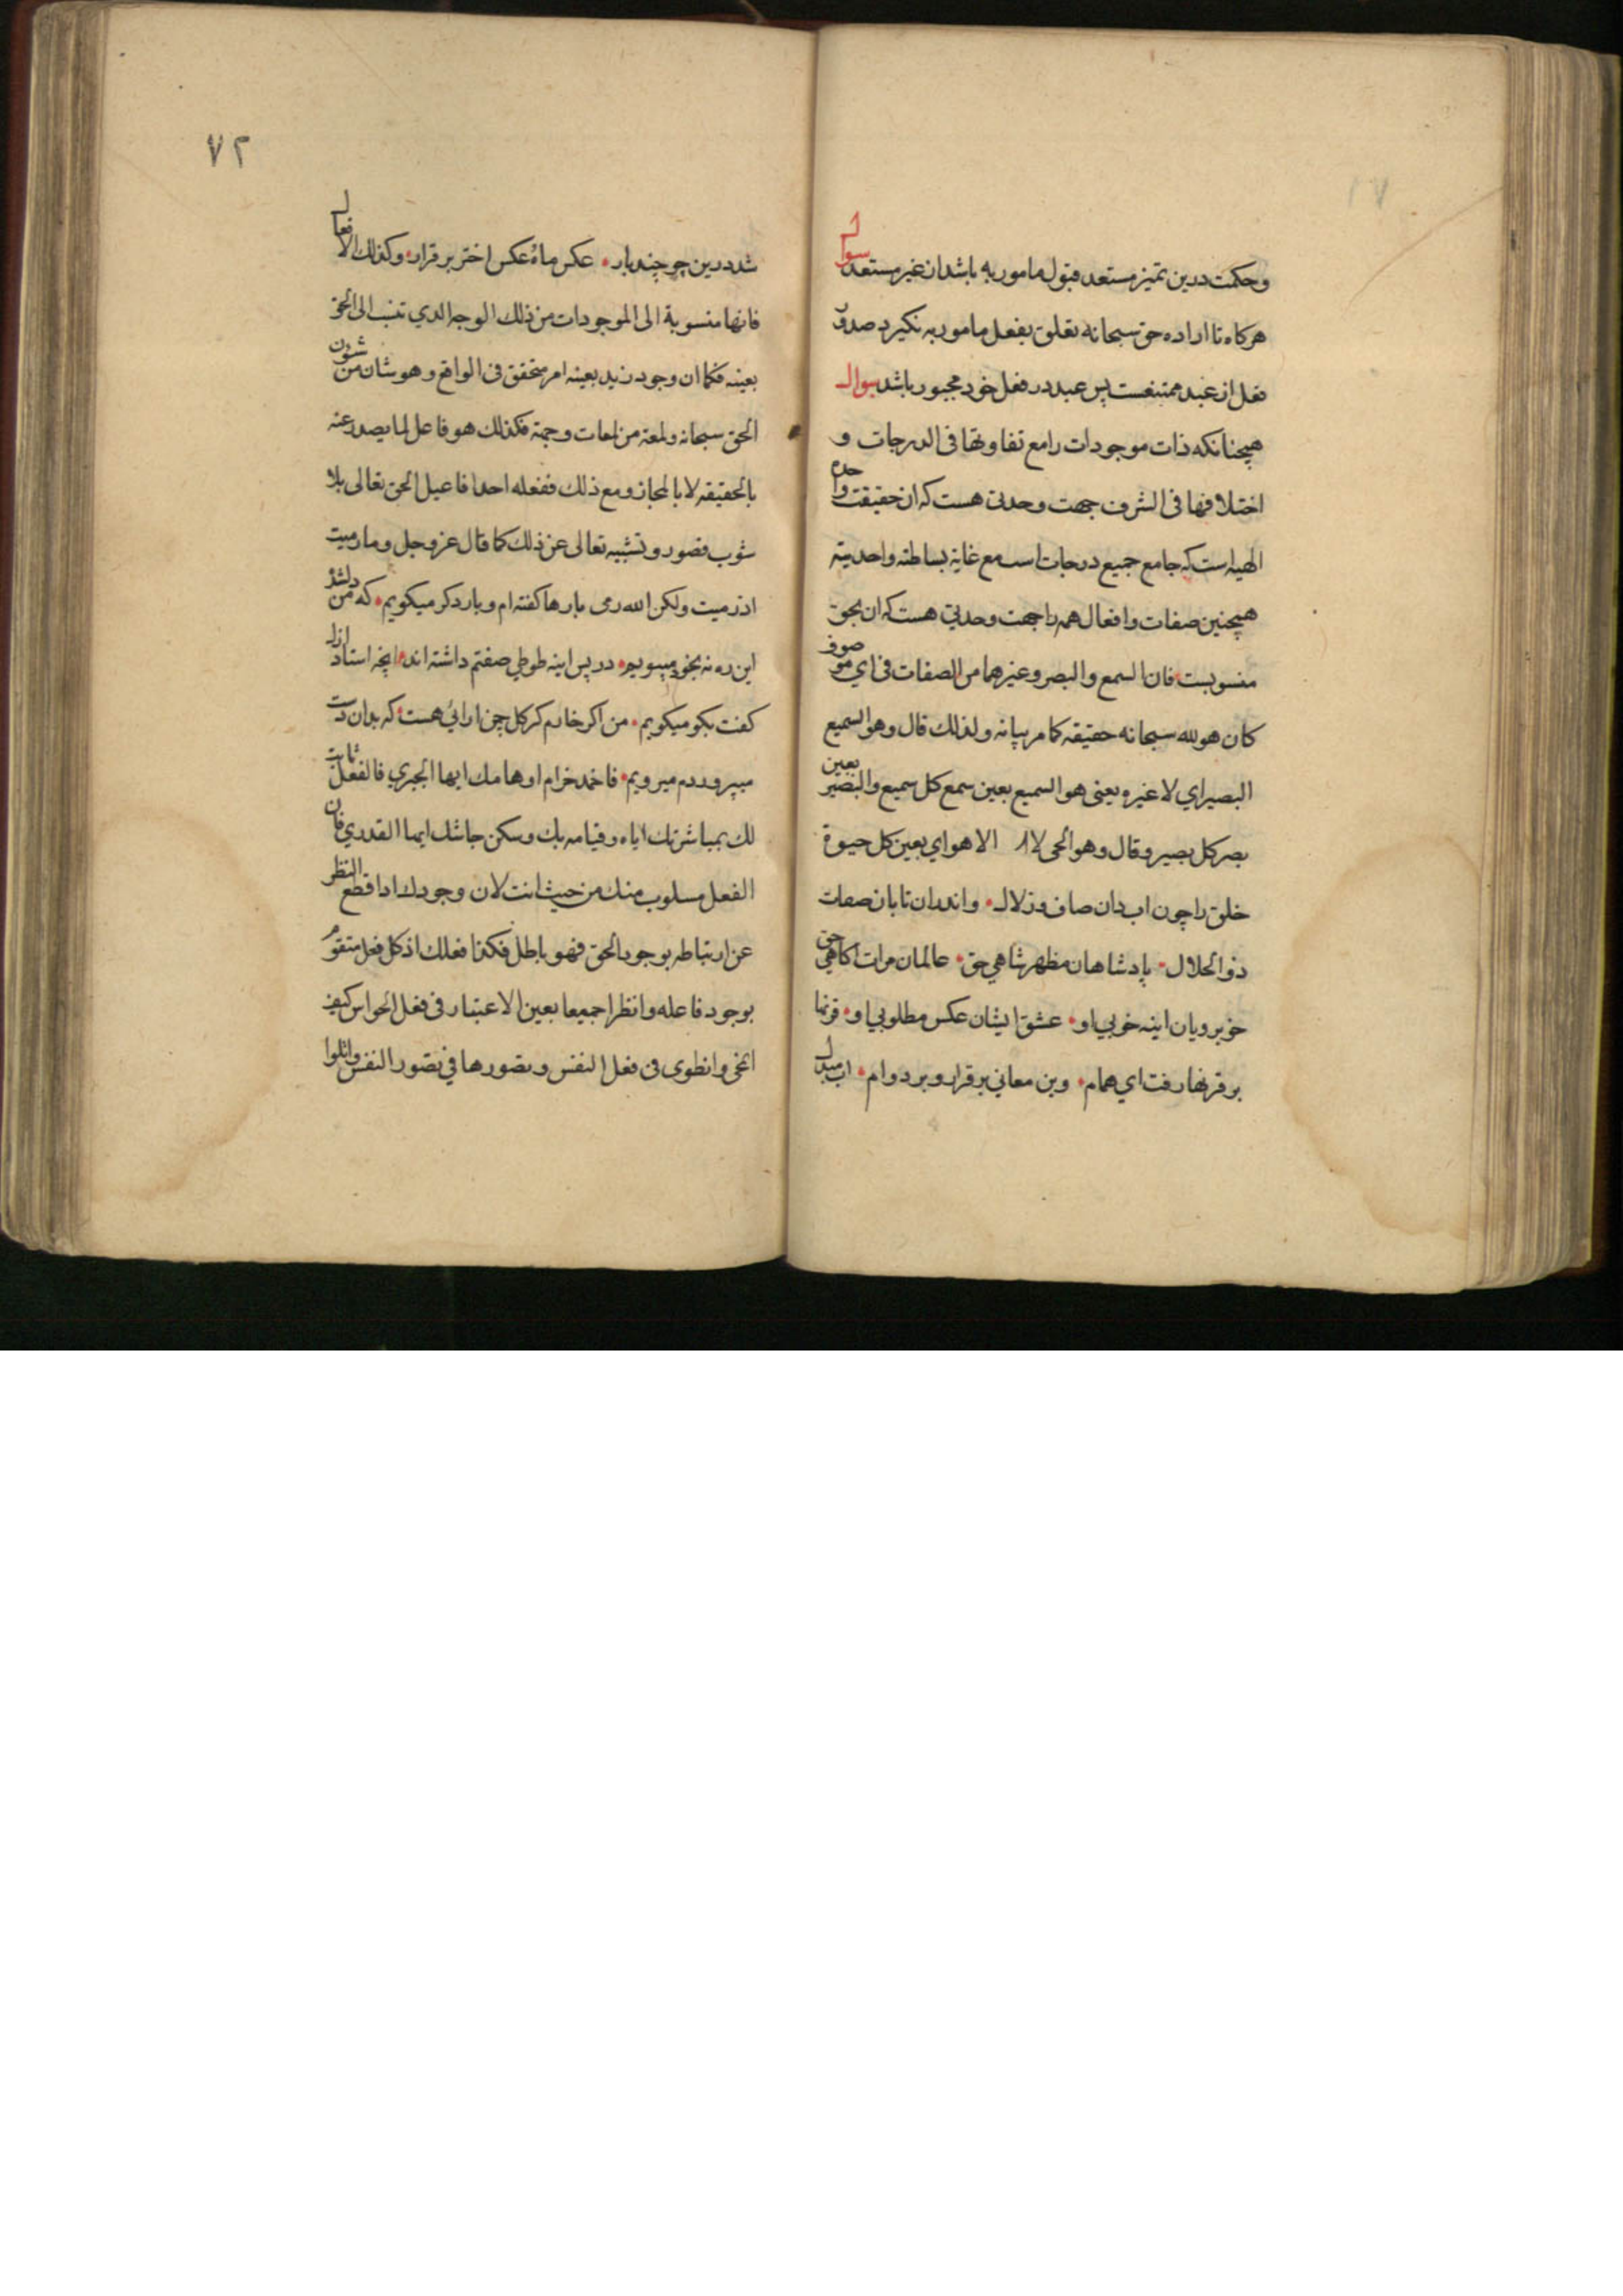 ۷۱
وحکمت درین تمیز مستعد قبول مامور به باشد از غیر مستعد سوال
هرکاه تا اراده حق سبحانه تعلق بفعل مامور به نکیرد صدور
فعل از عبد ممتنعست پس عبد در فعل خود مجبور باشد سوال
همچنانکه ذات موجودات را مع تفاوتها فی الدرجات و
اختلافها فی الشرف جهت وحدتی هست که ان حقیقت واحده
الهیه است که جامع جمیع درجات است مع غایة بساطته واحدیته
همچنین صفات وافعال همه را جهت وحدتی هست که ان بحق
منسوبست فان السمع والبصر وغیرهما من الصفات فی ای موصوف
کان هو لله سبحانه حقیقه کما مر بیانه ولذلک قال وهو السمیع
البصیر ای لا غیره یعنی هو السمیع بعین سمع کل سمیع والبصیر بعین
بصر کل بصیر وقال وهو الحی لا ا الا هو ای بعین کل حیوة
خلق را چون اب دان صاف وزلال واندران تابان صفات
ذو الجلال پادشاهان مظهر شاهی حق عالمان مرات اکاهی حق
خوبرویان اینه خوبی او عشق ایشان عکس مطلوبی او قرنها
بر قرنها رفت ای همام وین معانی بر قرار وبر دوام اب مبدل
۷۲
شد درین جو چند بار عکس ماه وعکس اختر بر قرار وکذلک الافعال
فانها منسوبة الی الموجودات من ذلک الوجه الذی تنسب الی الحق
بعینه فکما ان وجود زید بعینه امر متحقق فی الواقع وهو شان من شئون
الحق سبحانه ولمعة من لمعات وجهه فکذلک هو فاعل لما یصدر عنه
بالحقیقه لا بالمجاز ومع ذلک ففعله احد افاعیل الحق تعالی بلا
شوب قصور وتشبیه تعالی عن ذلک کما قال عز وجل وما رمیت
اذ رمیت ولکن الله رمی بارها کفته ام وبار دکر میکویم که من دلشده
این ره نه بخود میپویم در پس اینه طوطی صفتم داشته اند انچه استاد ازل
کفت بکو میکویم من اکر خارم کر کل چمن ارائی هست که بدان دست
میپروردم میرویم فاخمد ضرام اوهامک ایها الجبری فالفعل ثابت
لک بمباشرتک ایاه وقیامه بک وسکن جاشک ایها القدری فان
الفعل مسلوب منک من حیث انت لان وجودک اذا قطع النظر
عن ارتباطه بوجود الحق فهو باطل فکذا فعلک اذ کل فعل متقوم
بوجود فاعله وانظرا جمیعا بعین الاعتبار فی فعل الحواس کیف
انمحی وانطوی فی فعل النفس وتصورها فی تصور النفس واتلوا